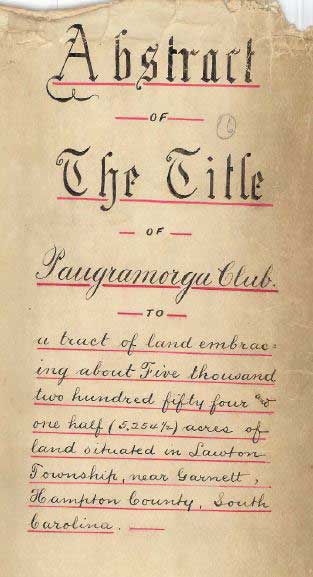 Abstract
OF
6
The Title
OF
Paugramorgu Club.
TO
a tract of land embrac=
ing about Five thousand
two hundred fifty four and
one half (5,254½) acres of
land situated in Lawton
Township, near Garnett,
Hampton County, South
Carolina.